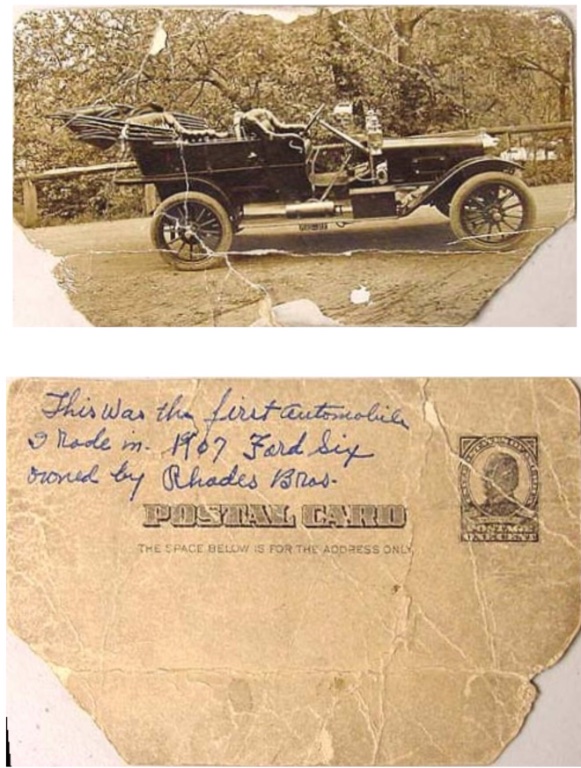 This was the first automobile
I rode in. 1907 Ford Six
owned by Rhodes Bros.
POSTAL CARD
THE SPACE BELOW IS FOR THE ADDRESS ONLY.
POSTAGE
ONE CENT